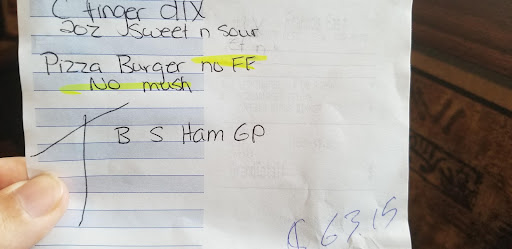 C finger dlx
2oz Sweet n sour
Pizza Burger no FF
No mush
B S Ham GP
63.15